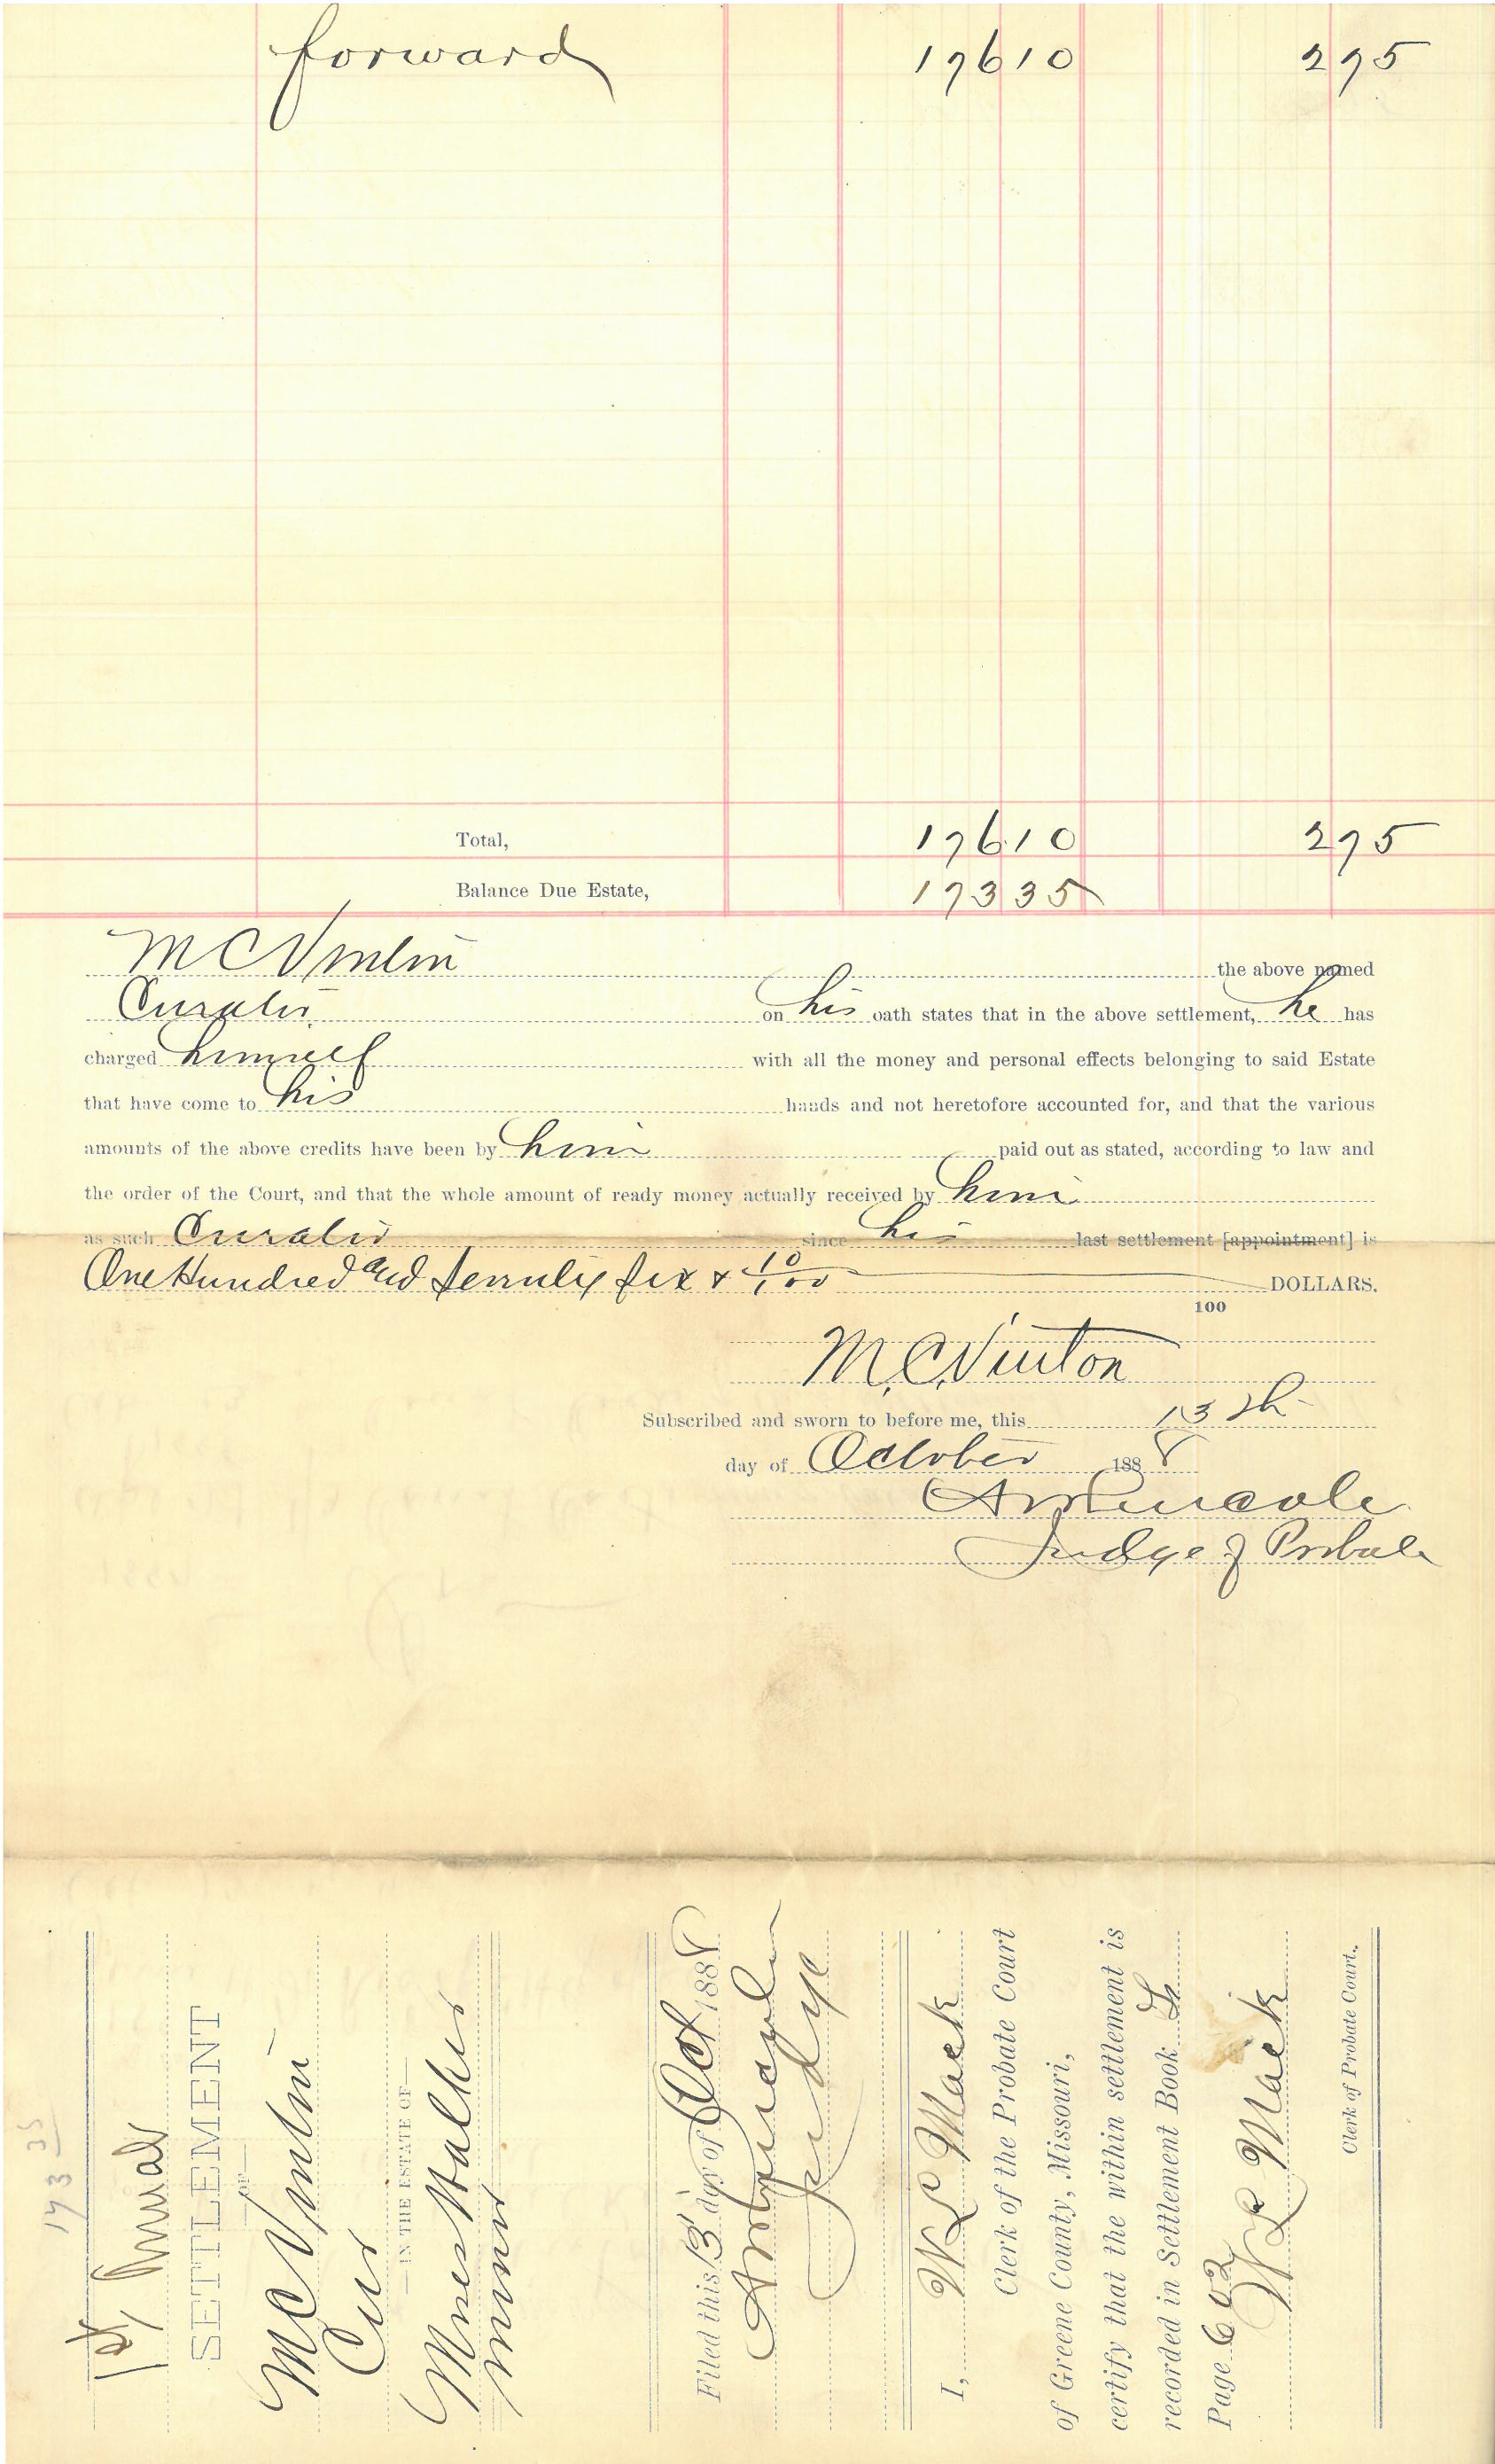 forward 176 10 2 75
Total, 176.10 2 75
Balance Due Estate, 173 35
M C Vinton the above named
Curator on his oath states that in the above settlement, he has
charged himself with all the money and personal effects belonging to said Estate
that have come to his hands and not heretofore accounted for, and that the various
amounts of the above credits have been by him paid out as stated, according to law and
the order of the Court, and that the whole amount of ready money actually received by him
as such Curator since his last settlement [appointment] is
One Hundred and Seventy six & 10/100 DOLLARS.
100
M. C. Vinton
Subscribed and sworn to before me, this 13th
day of October 1888
Judge of Probate
173 35
1st Annual
SETTLEMENT
—OF—
M C Vinton
Cur
—IN THE ESTATE OF—
Walker
minor
Filed this 13 day of Oct 1888
Judge
I, W L Mack
Clerk of the Probate Court
of Greene County, Missouri,
certify that the within settlement is
recorded in Settlement Book
Page 602
W L Mack
Clerk of Probate Court.